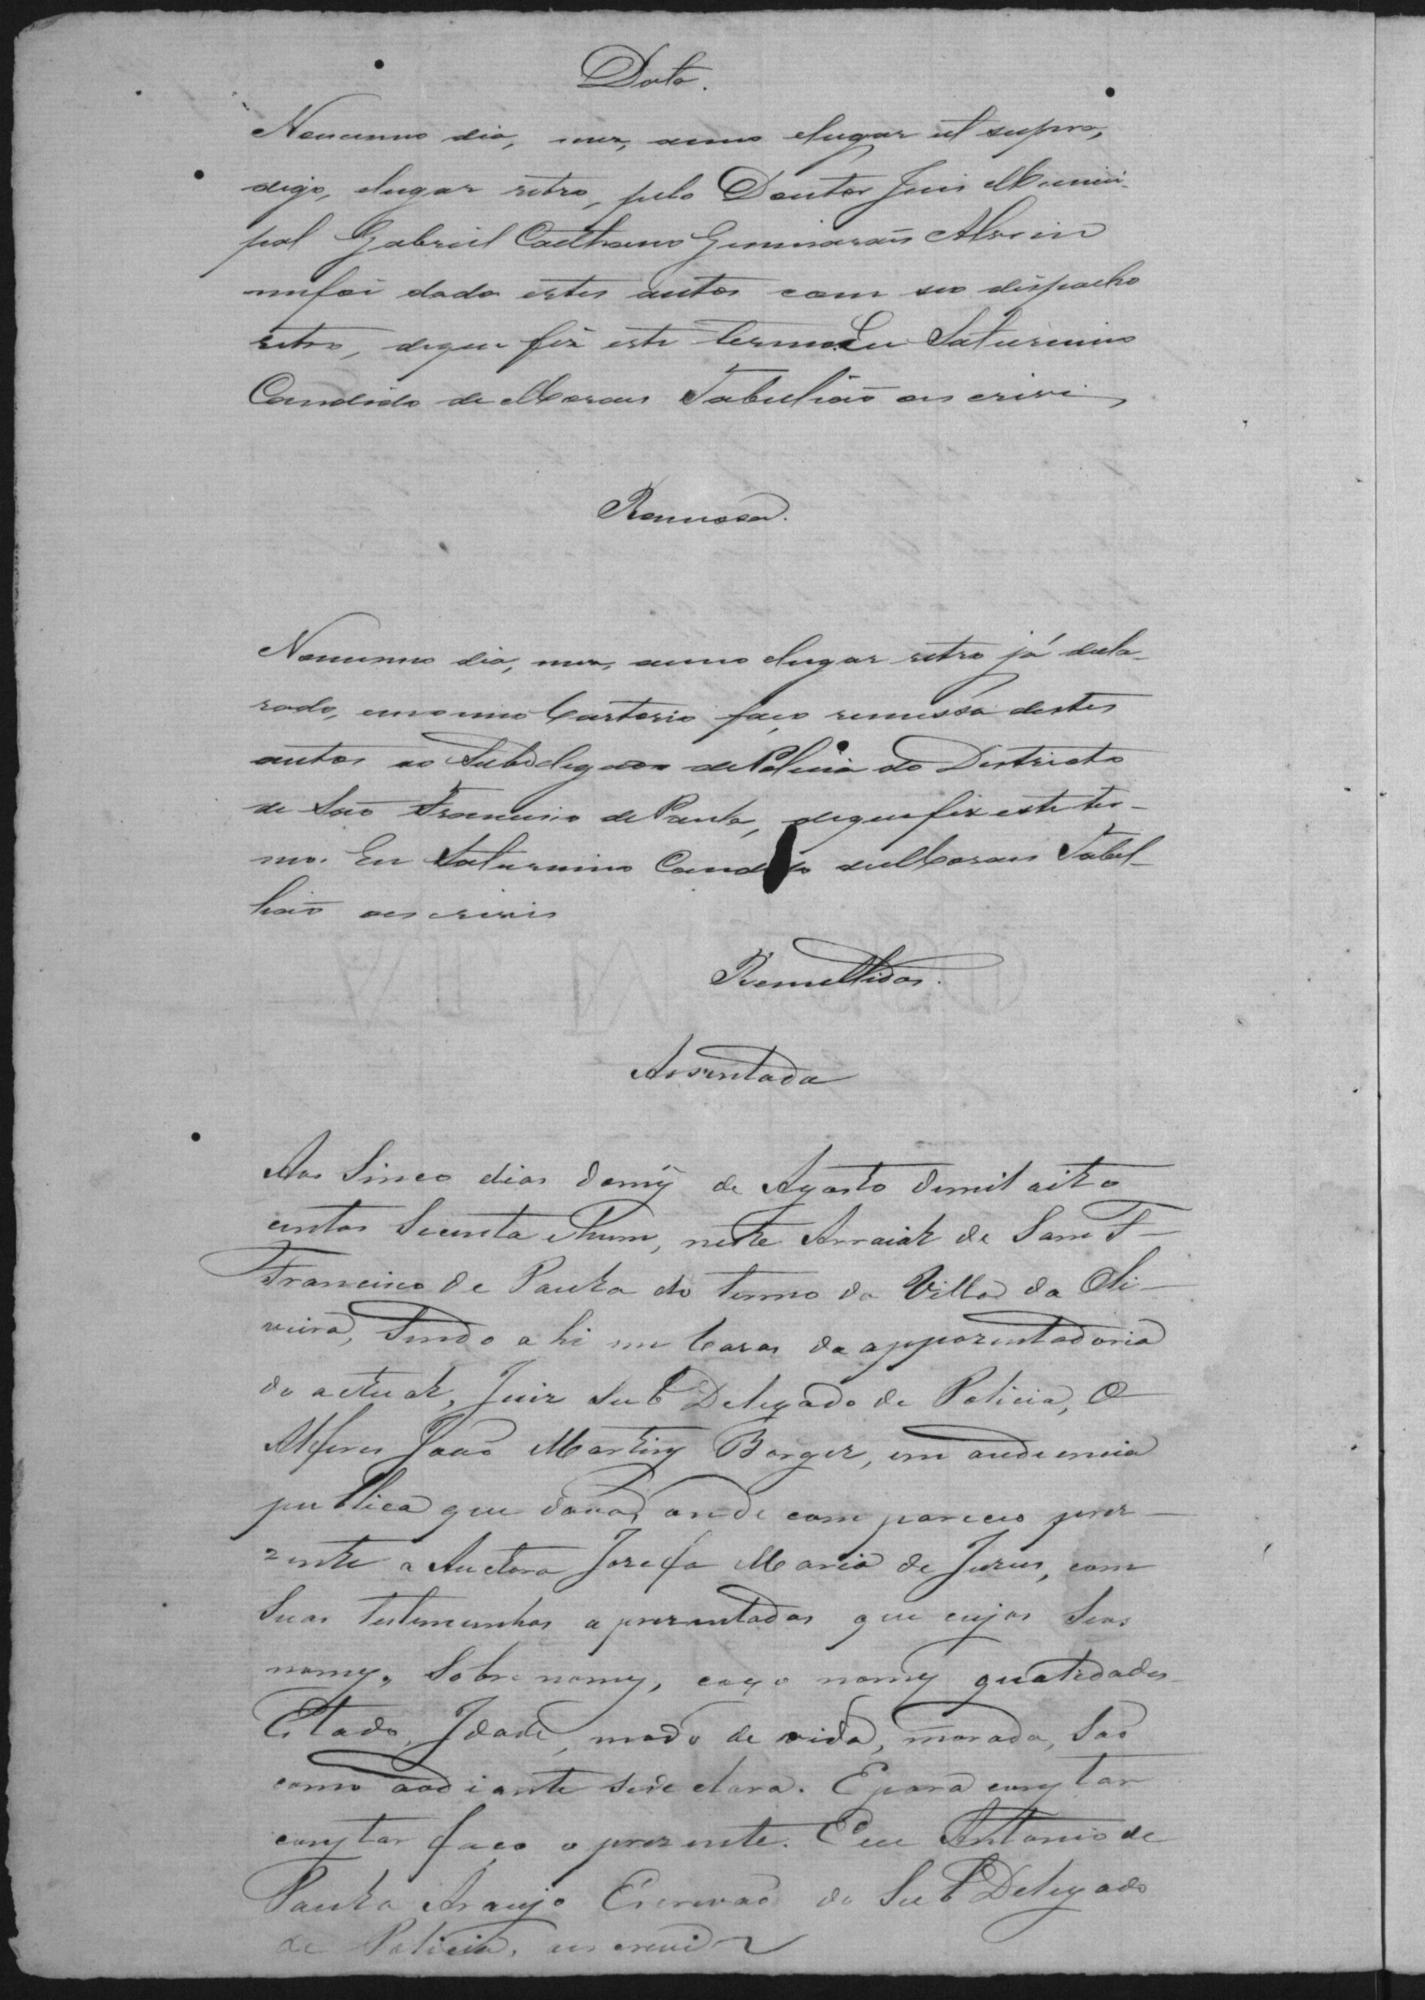 Data.
No mesmo dia, mez, anno elugar ut supra,
digo, elugar retro, pelo Doutor Juis Munici-
pal Gabriel Caethano Guimarais Alvim
mefoi dado estes autos com seo despacho
retro, deque fiz este termo. Eu Saturnino
Candido de Moraes Tabelião os escrivi
Remessa.
No mesmo dia, mez, anno elugar retro já decla-
rado, emomeo Cartorio faço remessa destes
autos ao Subdelegado de Policia do Districto
de São Francisco de Paula, dequefiz este ter-
mo. Eu Saturnino Candido de Moraes Tabel-
lião os escrivi
Remettidos.
Assentada
Aos Sinco dias domȷ̃ de Agosto demil oito
centos Secenta ehum, neste Arraial de Sam F
Francisco de Paula do termo da Villa da Oli-
veira, Sendo ahi em Casas da appozentadoria
do actual, Juiz Sub Delegado de Policia, O
Alferes João Martins Borges, em audiencia
publica que dava, onde compareceo prez-
zente a Auctora Jozefa Maria de Jezus, com
Suas testemunhas aprezentadas que cujos Seos
nomes, Sobre nomes, cogo nomes qualidades
Estado, Idade, modo de vida, morada, São
como aodiante sede clara. Epara constar
constar faço o prezente. Eeu Antonio de
Paula Araujo Escrivão do Sub Delegado
de Policia, os crevi